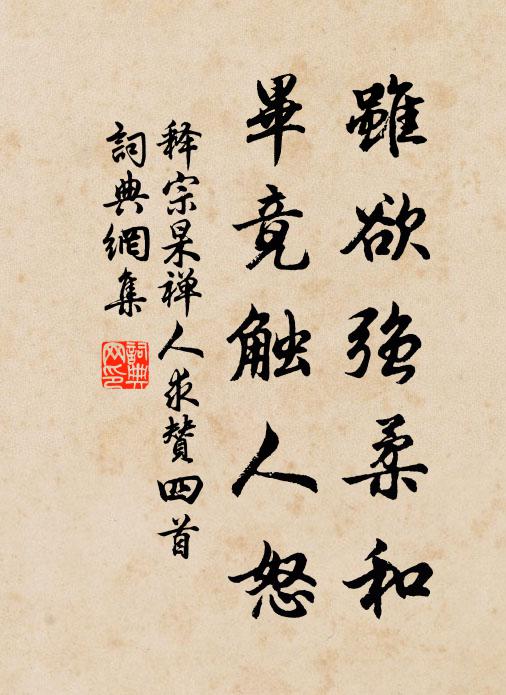 雖欲強柔和
畢竟触人怒
释宗杲禅人求贊四首
詞典網集
詞典
网印